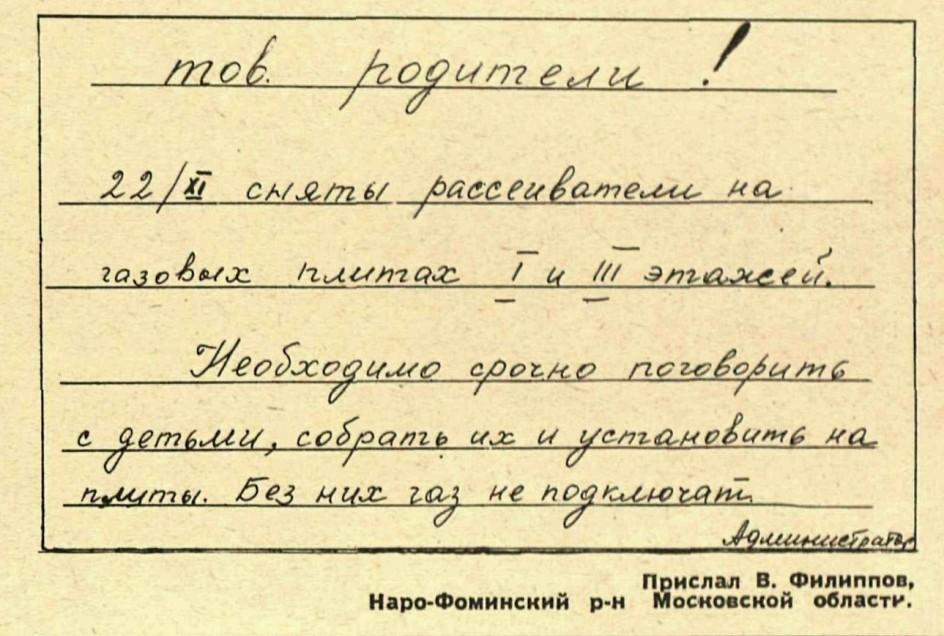 тов. родители!
22/XI сняты рассеиватели на
газовых плитах I и III этажей.
Необходимо срочно поговорить
с детьми, собрать их и установить на
плиты. Без них газ не подключат.
Администратор
Прислал В. Филиппов,
Наро-Фоминский р-н Московской области.